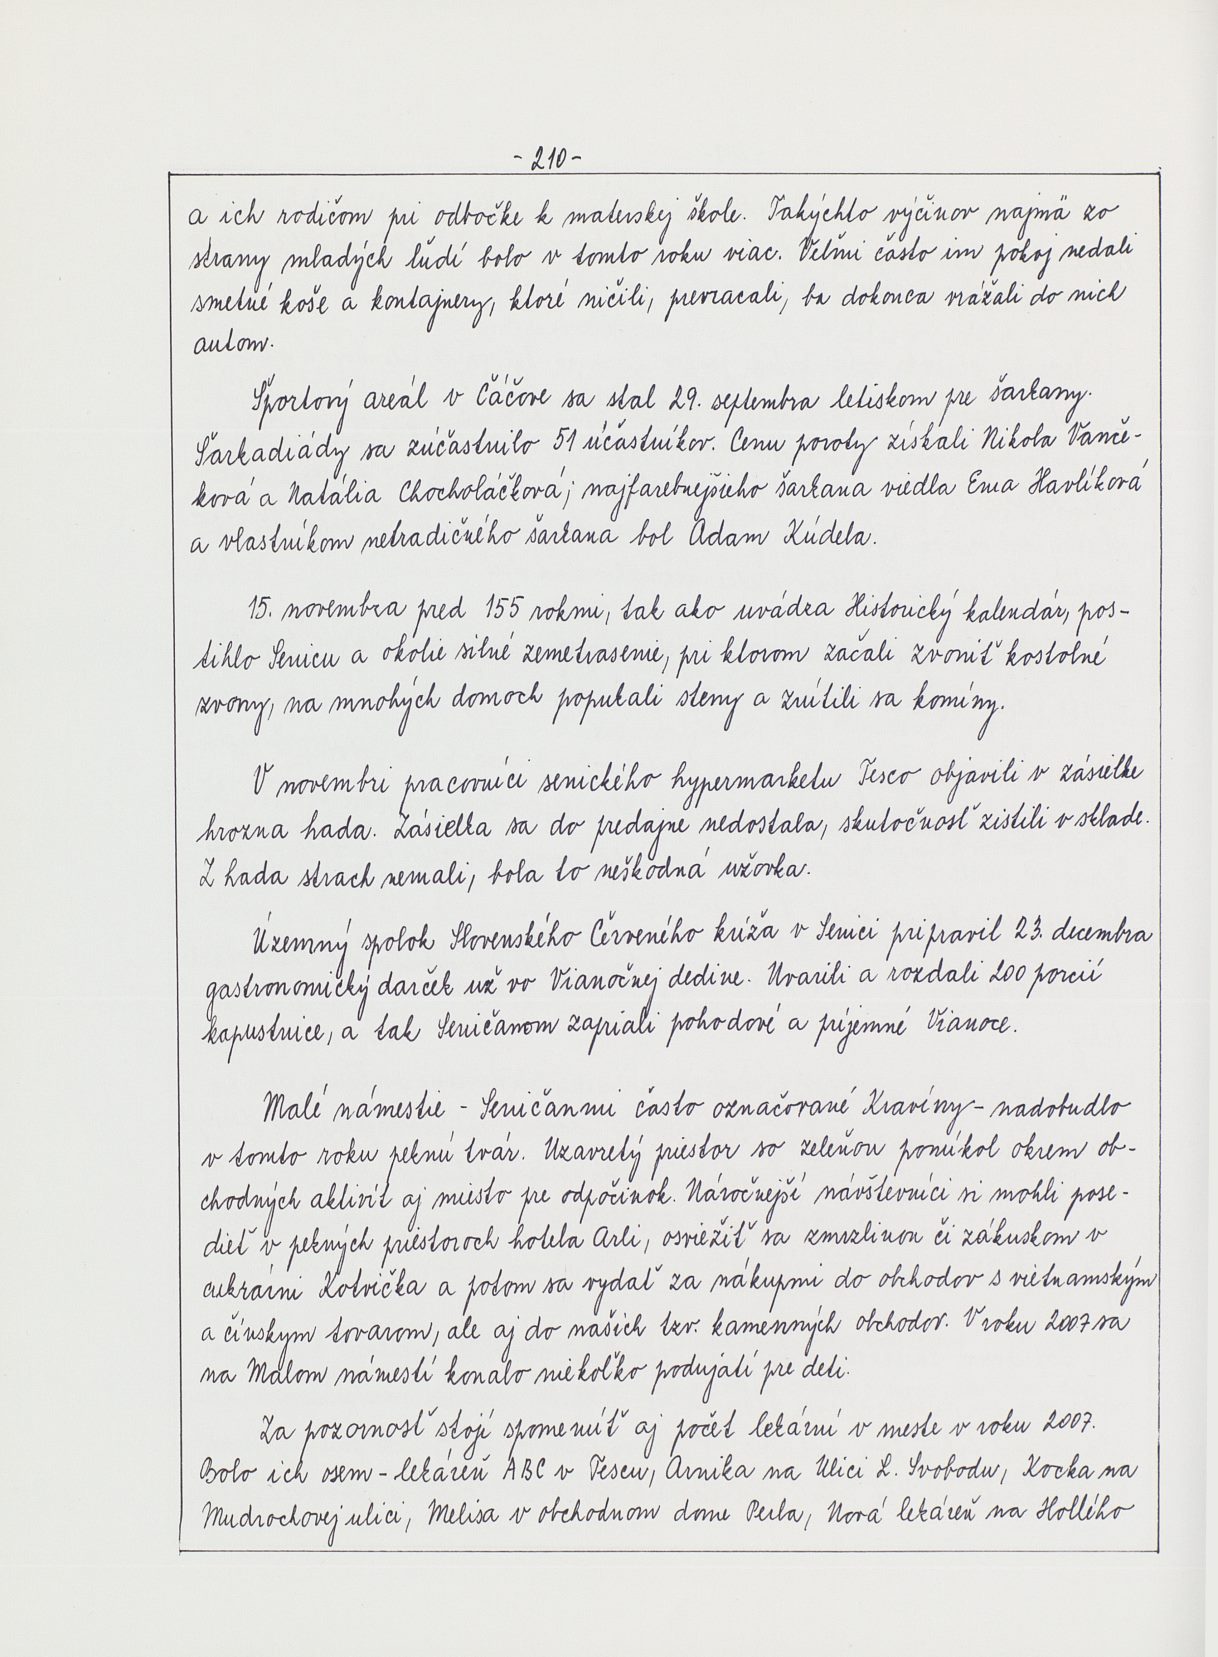 - 210 -
a ich rodičom pri odbočke k materskej škole. Takýchto výčinov najmä zo
strany mladých ľudí bolo v tomto roku viac. Veľmi často im pokoj nedali
smetné koše a kontajnery, ktoré ničili, prevracali, ba dokonca vrážali do nich
autom.
Športový areál v Čáčove sa stal 29. septembra letiskom pre šarkany.
Šarkadiády sa zúčastnilo 51 účastníkov. Cenu poroty získali Nikola Vanče-
ková a Natália Chocholáčková; najfarebnejšieho šarkana viedla Ema Havlíková
a vlastníkom netradičného šarkana bol Adam Kúdela.
15. novembra pred 155 rokmi, tak ako uvádza Historický kalendár, pos-
tihlo Senicu a okolie silné zemetrasenie, pri ktorom začali zvoniť kostolné
zvony, na mnohých domoch popukali steny a zrútili sa komíny.
V novembri pracovníci senického hypermarketu Tesco objavili v zásielke
hrozna hada. Zásielka sa do predajne nedostala, skutočnosť zistili v sklade.
Z hada strach nemali, bola to neškodná užovka.
Územný spolok Slovenského Červeného kríža v Senici pripravil 23. decembra
gastronomický darček už vo Vianočnej dedine. Uvarili a rozdali 200 porcií
kapustnice, a tak Seničanom zapriali pohodové a príjemné Vianoce.
Malé námestie - Seničanmi často označované Kravíny - nadobudlo
v tomto roku peknú tvár. Uzavretý priestor so zeleňou ponúkol okrem ob-
chodných aktivít aj miesto pre odpočinok. Náročnejší návštevníci si mohli pose-
dieť v pekných priestoroch hotela Arli, osviežiť sa zmrzlinou či zákuskom v
cukrárni Kotvička a potom sa vydať za nákupmi do obchodov s vietnamským
a čínskym tovarom, ale aj do našich tzv. kamenných obchodov. V roku 2007 sa
na Malom námestí konalo niekoľko podujatí pre deti.
Za pozornosť stojí spomenúť aj počet lekární v meste v roku 2007.
Bolo ich osem - lekáreň ABC v Tescu, Arnika na Ulici L. Svobodu, Kocka na
Mudrochovej ulici, Melisa v obchodnom dome Perla, Nová lekáreň na Hollého